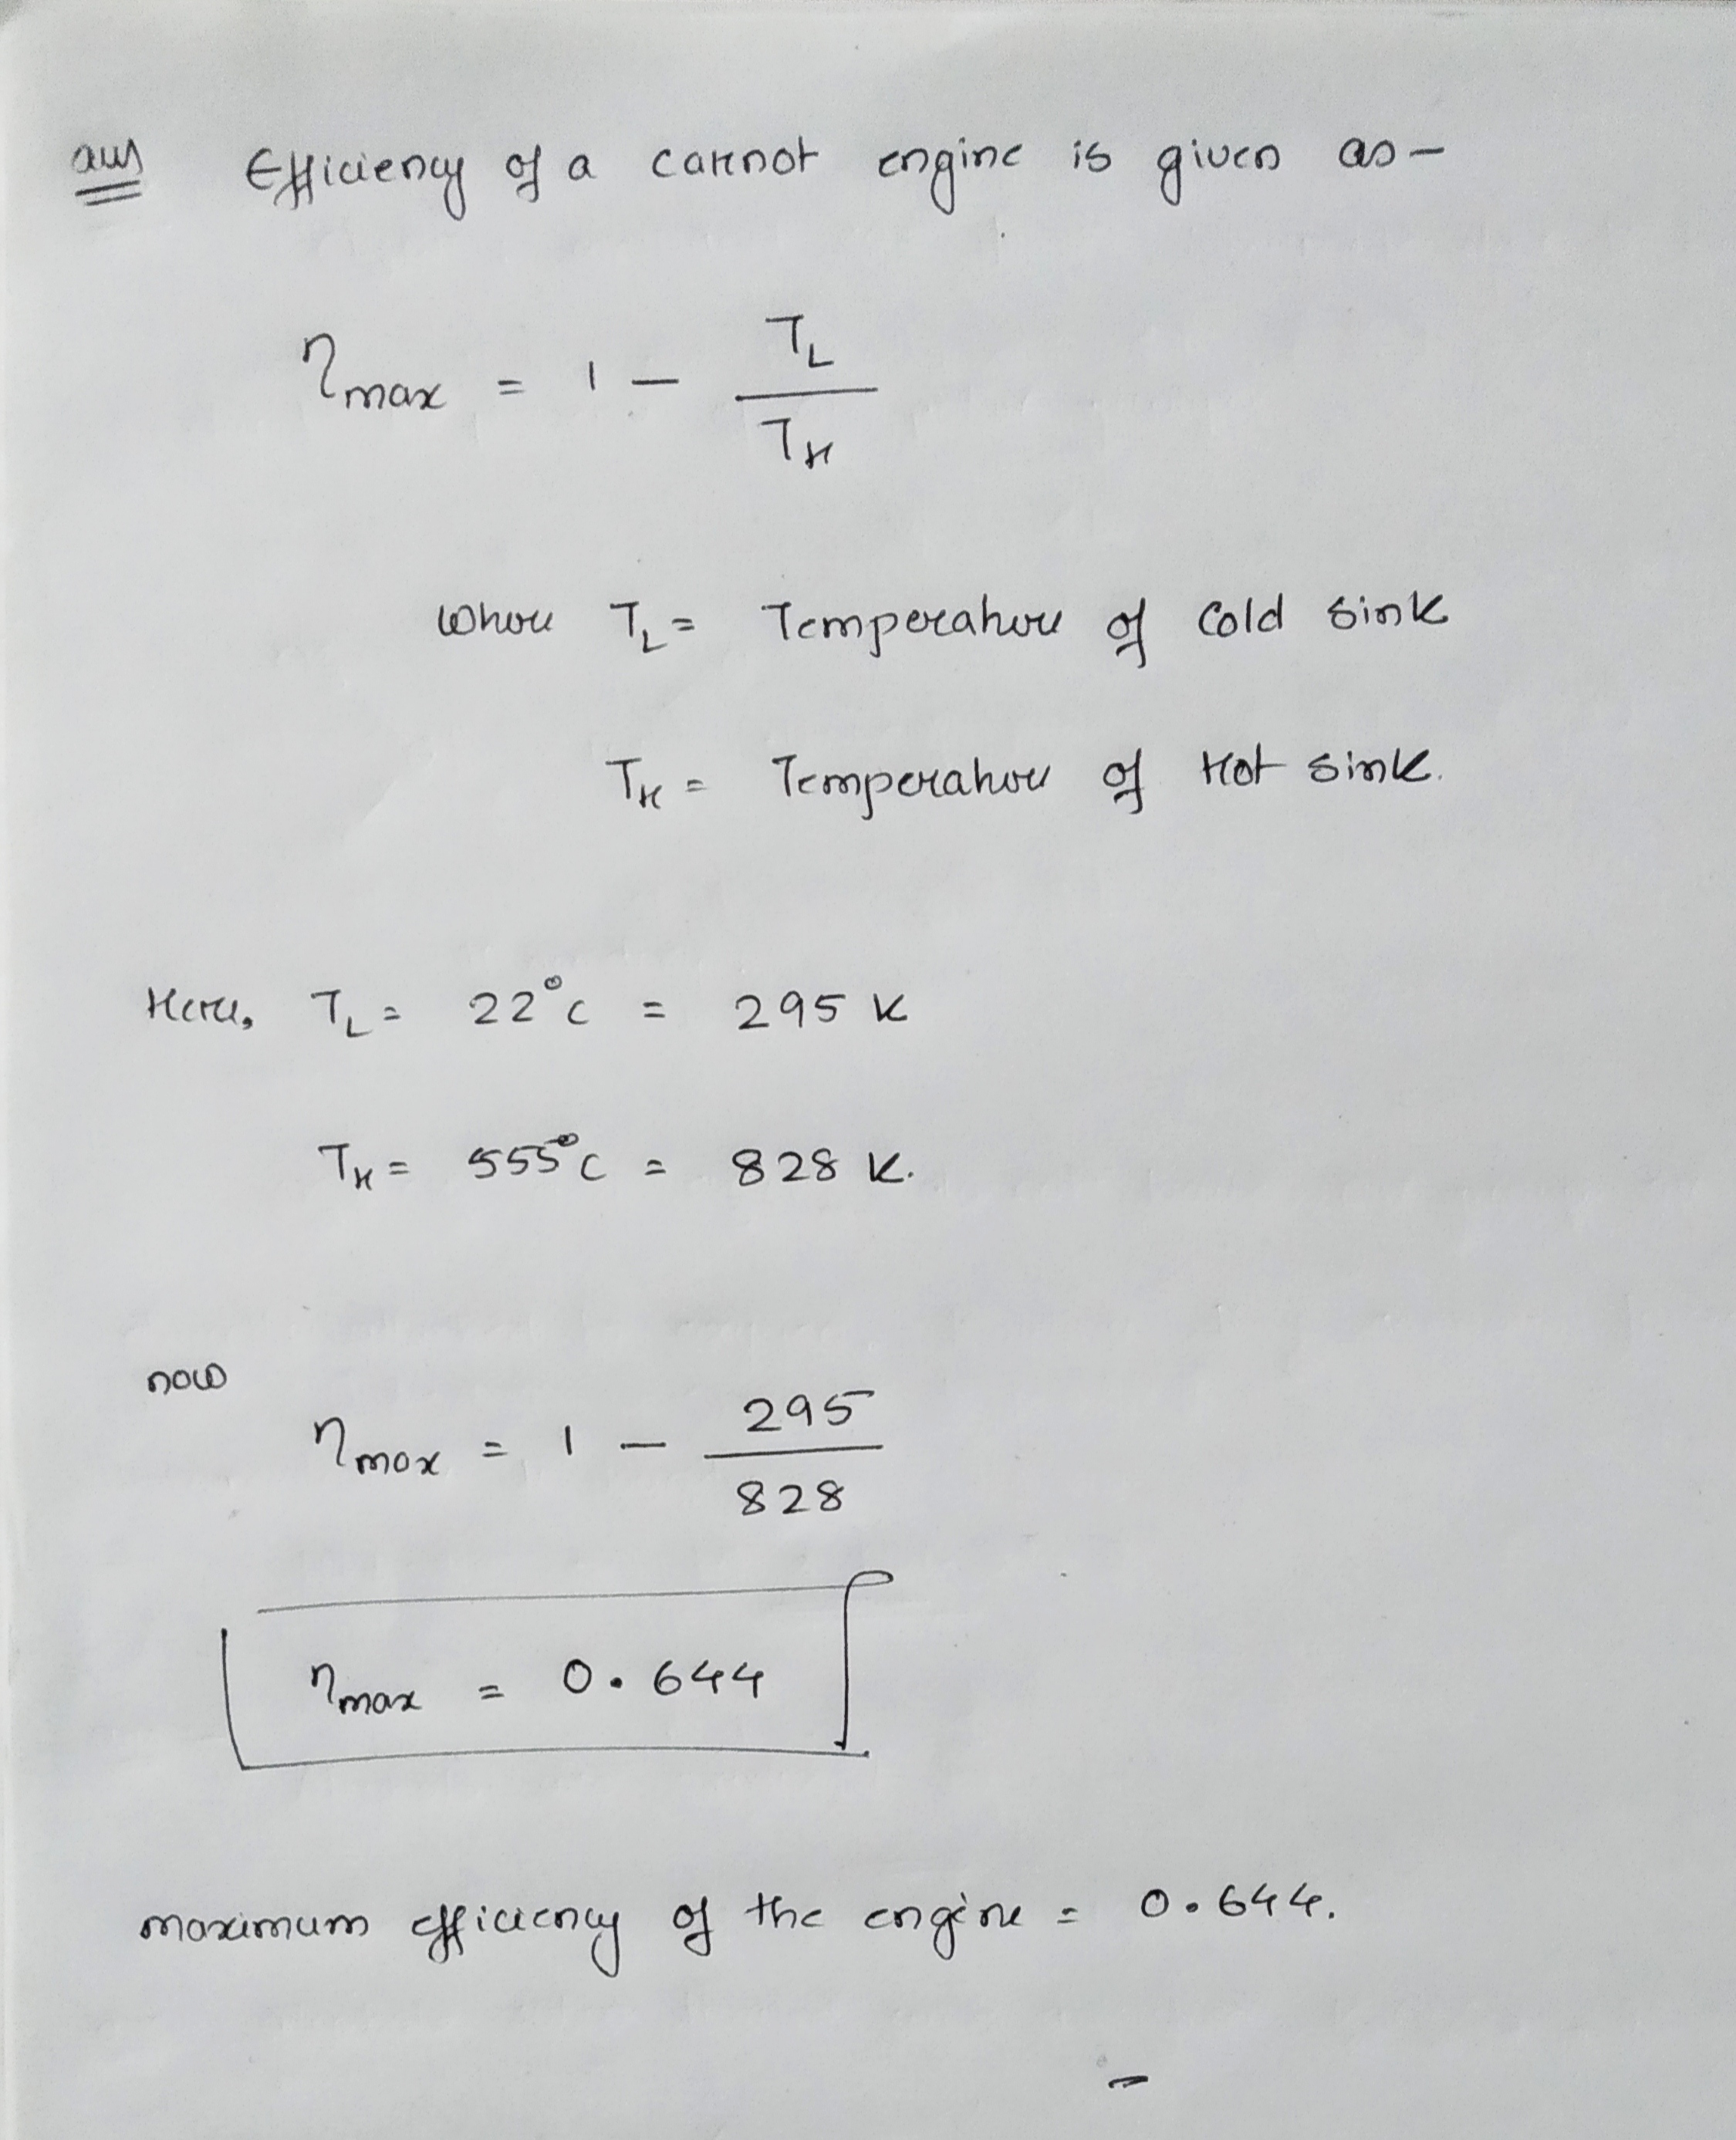 ans Efficiency of a carnot engine is given as-
ηmax = 1 - TL/TH
where TL = Temperature of Cold sink
TH = Temperature of Hot sink.
Here, TL = 22°C = 295 K
TH = 555°C = 828 K.
now
ηmax = 1 - 295/828
ηmax = 0.644
maximum efficiency of the engine = 0.644.